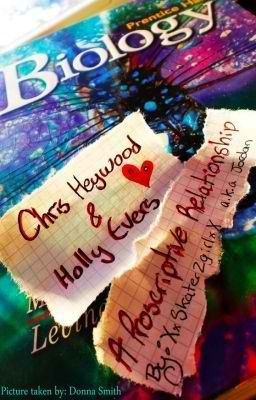 Prentice Ha
Biology
Chris Heywood
&
Holly Evers
A Proscriptive Relationship
By: XxSkater2girl16xX a.k.a Jordan
M
Levin
Picture taken by: Donna Smith